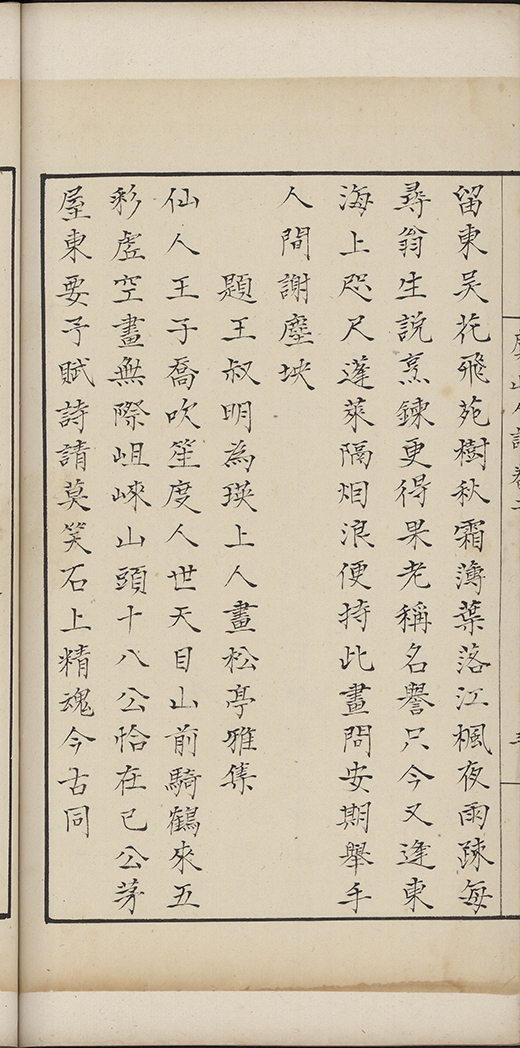 留東吴花飛苑樹秋霜薄葉落江楓夜雨疎每
尋翁生說烹鍊更得果老稱名譽只今又逢東
海上咫尺蓬萊隔烟浪便持此畫問安期舉手
人間謝塵坱
題王叔明為瑛上人畫松亭雅集
仙人王子喬吹笙度人世天目山前騎鶴來五
彩虗空畫無際岨崍山頭十八公恰在已公茅
屋東要予賦詩請莫笑石上精魂今古同